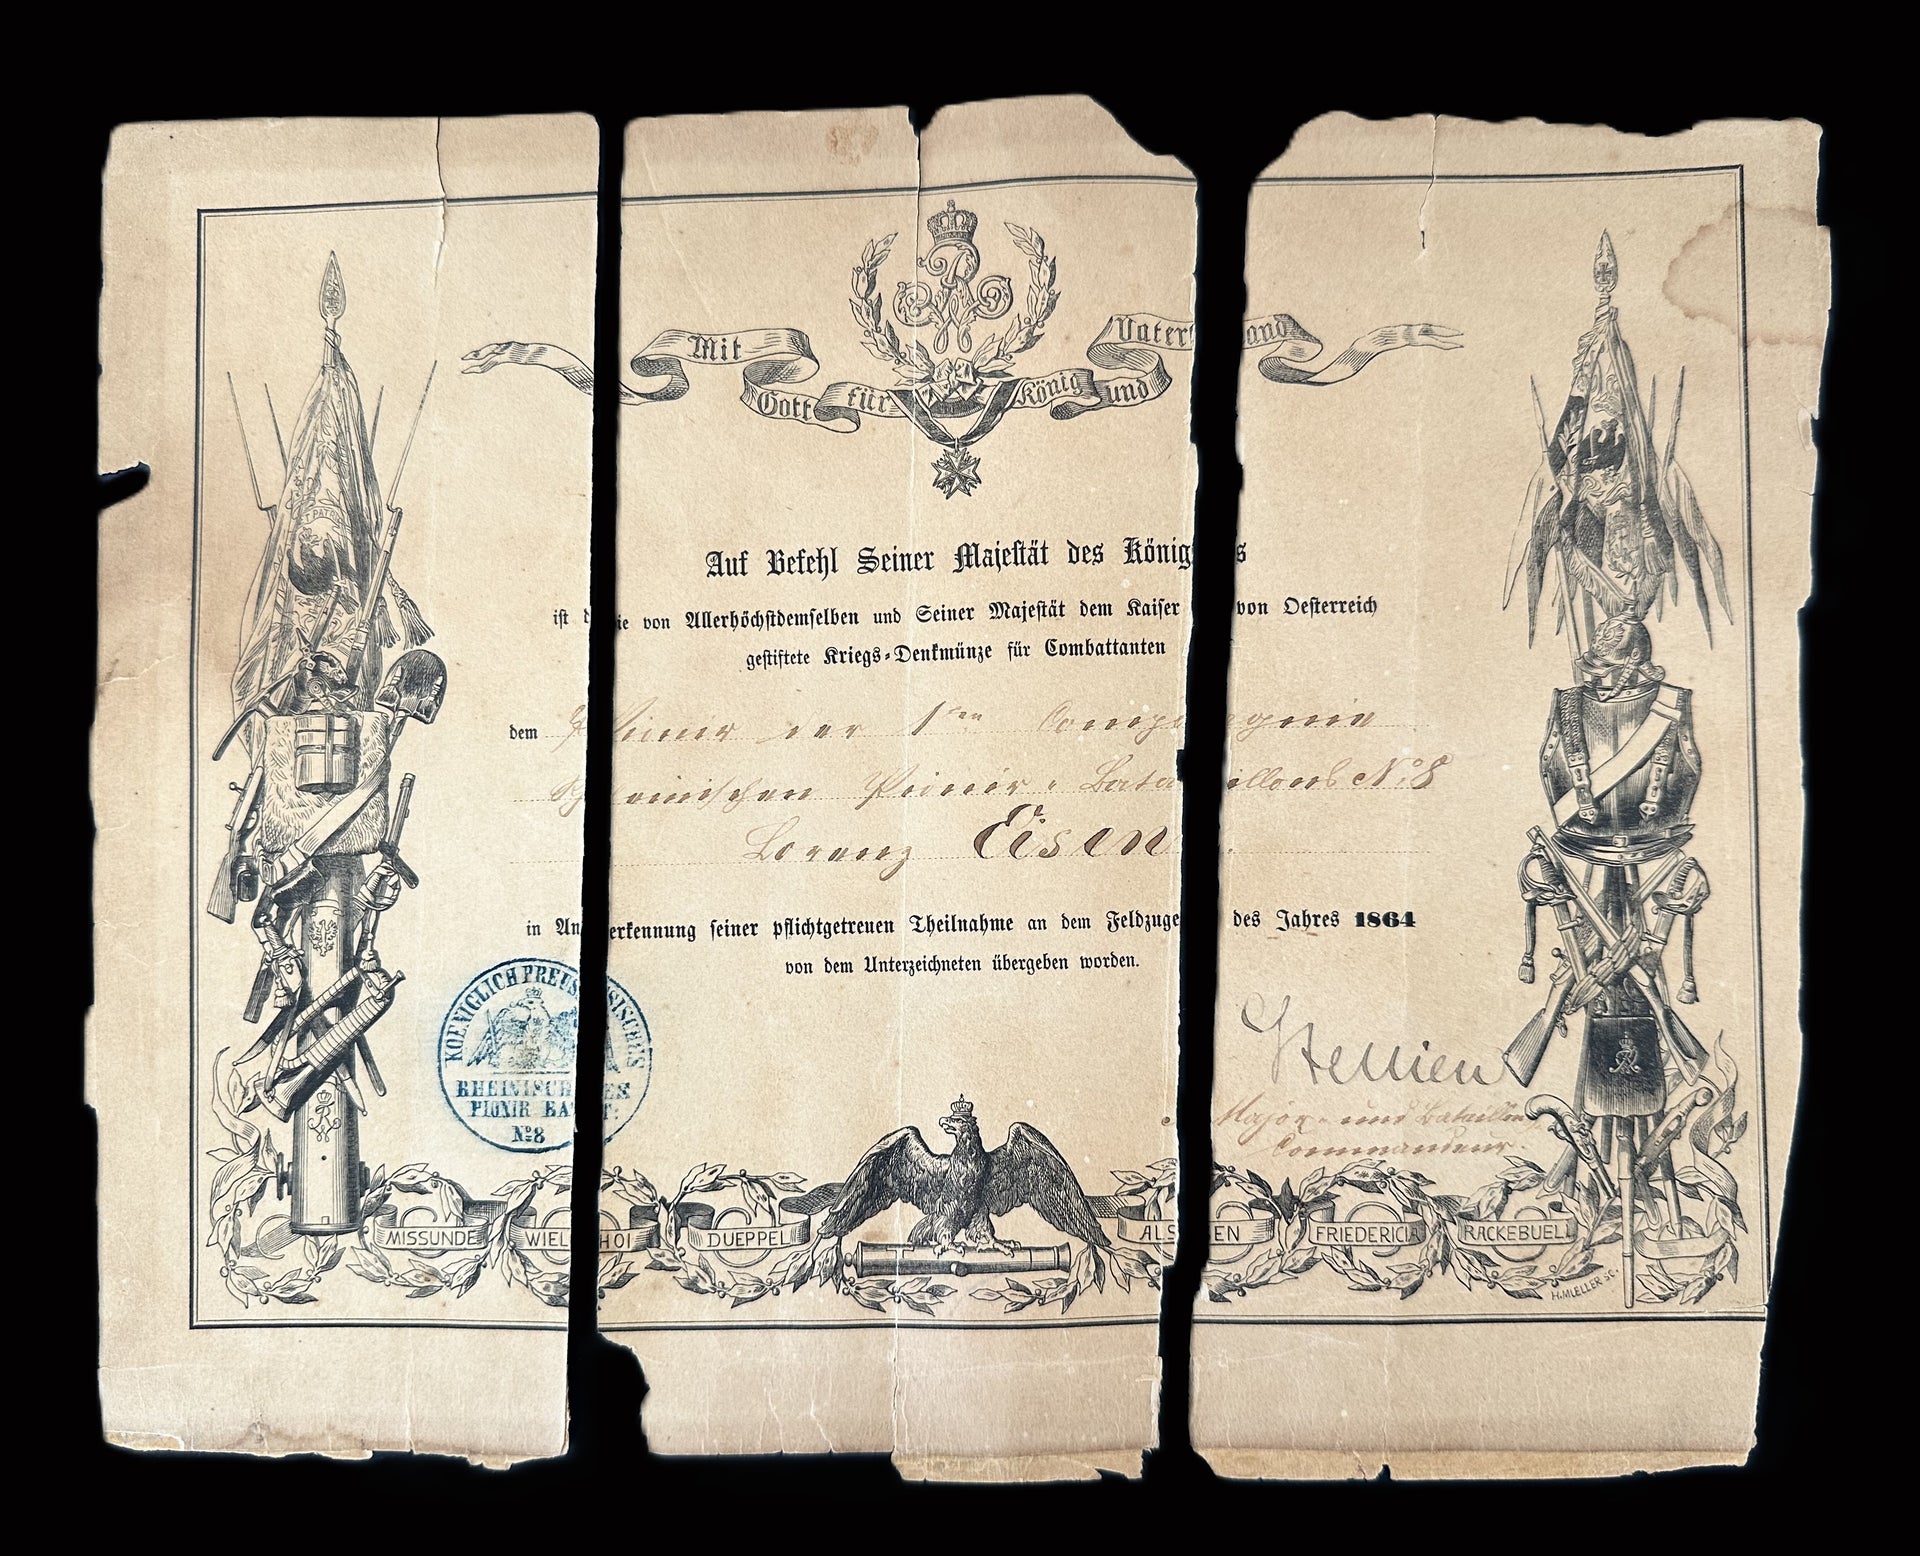 Mit Gott für König und Vaterland
Auf Befehl Seiner Majestät des Königs
ist die von Allerhöchstdemselben und Seiner Majestät dem Kaiser von Oesterreich
gestiftete Kriegs-Denkmünze für Combattanten
dem Pionir der 1ten Compagnie
Rheinischen Pionir-Bataillons No 8
Lorenz Eisen
in Anerkennung seiner pflichtgetreuen Theilnahme an dem Feldzuge des Jahres 1864
von dem Unterzeichneten übergeben worden.
KOENIGLICH PREUSSISCHES
RHEINISCHES
PIONIR BAT:
No 8
Major und Bataillons
Commandeur.
MISSUNDE
WIELHOI
DUEPPEL
ALSEN
FRIEDERICIA
RACKEBUELL
H. MUELLER SC.